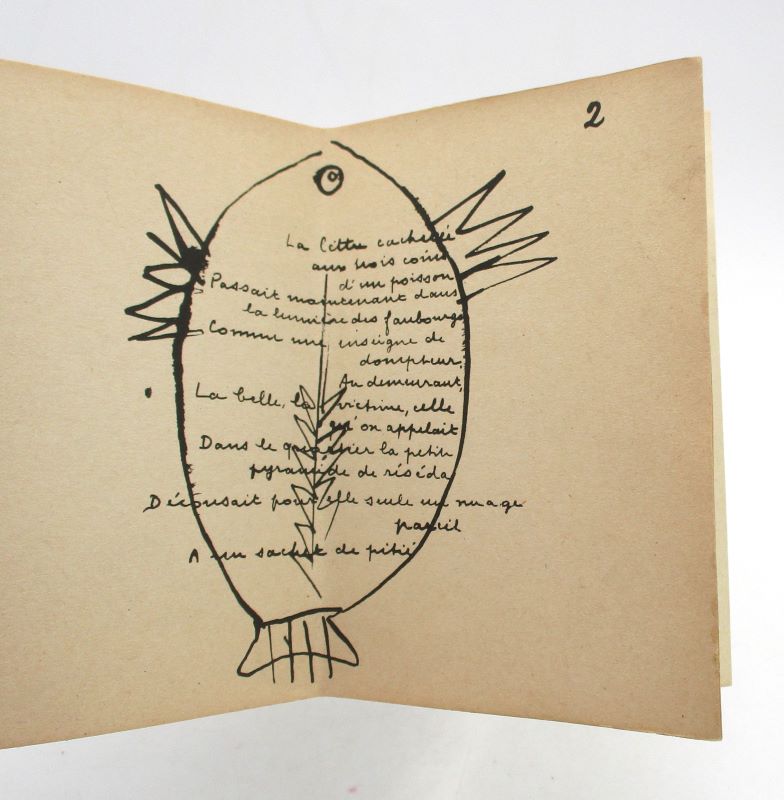 2
La lettre cachetée
aux trois coins
d'un poisson
Passait maintenant dans
la lumière des faubourgs
Comme une enseigne de
dompteur.
Au demeurant,
La belle, la victime, celle
qu'on appelait
Dans le quartier la petite
pyramide de réséda
Décousait pour elle seule un nuage
pareil
A un sachet de pitié